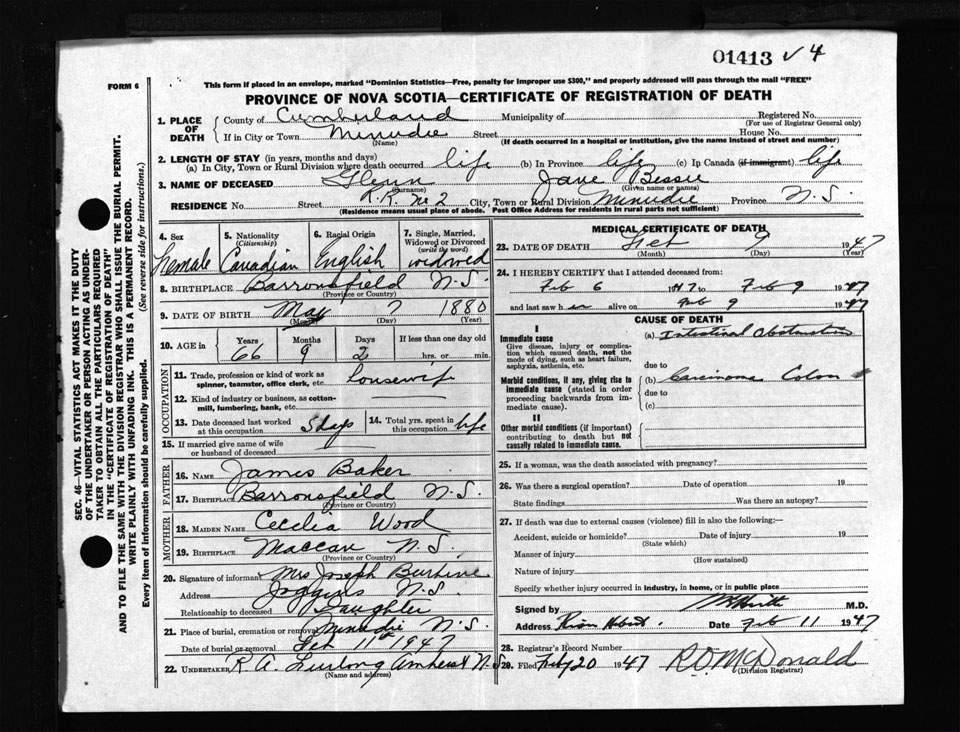 01413 √ 4
FORM 6
This form if placed in an envelope, marked "Dominion Statistics—Free, penalty for improper use $300," and properly addressed will pass through the mail "FREE"
PROVINCE OF NOVA SCOTIA—CERTIFICATE OF REGISTRATION OF DEATH
1. PLACE OF DEATH
County of Cumberland Municipality of Registered No.
(For use of Registrar General only)
If in City or Town Minudie Street House No.
(Name) (If death occurred in a hospital or institution, give the name instead of street and number)
2. LENGTH OF STAY (in years, months and days)
(a) In City, Town or Rural Division where death occurred life (b) In Province life (c) In Canada (if immigrant) life
3. NAME OF DECEASED Glenn Jane Bessie
(Surname) (Given name or names)
RESIDENCE No. Street R.R. No 2 City, Town or Rural Division Minudie Province N.S.
(Residence means usual place of abode. Post Office Address for residents in rural parts not sufficient)
4. Sex Female
5. Nationality (Citizenship) Canadian
6. Racial Origin English
7. Single, Married, Widowed or Divorced (write the word) widowed
8. BIRTHPLACE Barronsfield N.S.
(Province or Country)
9. DATE OF BIRTH May 7 1880
(Month) (Day) (Year)
10. AGE in Years Months Days If less than one day old
66 9 2 hrs. or min.
OCCUPATION
11. Trade, profession or kind of work as spinner, teamster, office clerk, etc. housewife
12. Kind of industry or business, as cotton-mill, lumbering, bank, etc.
13. Date deceased last worked at this occupation 5 days
14. Total yrs. spent in this occupation life
15. If married give name of wife or husband of deceased
FATHER
16. NAME James Baker
17. BIRTHPLACE Barronsfield N.S.
(Province or Country)
MOTHER
18. MAIDEN NAME Cecelia Wood
19. BIRTHPLACE Maccan N.S.
(Province or Country)
20. Signature of informant Mrs Joseph
Address Joggins N.S.
Relationship to deceased Daughter
21. Place of burial, cremation or removal Minudie N.S.
Date of burial or removal Feb 11th 1947
22. UNDERTAKER R A Furlong Amherst N.S.
(Name and address)
MEDICAL CERTIFICATE OF DEATH
23. DATE OF DEATH Feb 9 1947
(Month) (Day) (Year)
24. I HEREBY CERTIFY that I attended deceased from:
Feb 6 1947 to Feb 9 1947
and last saw her alive on Feb 9 1947
CAUSE OF DEATH
I
Immediate cause
Give disease, injury or complication which caused death, not the mode of dying, such as heart failure, asphyxia, asthenia, etc.
(a) Intestinal Obstruction
due to
Morbid conditions, if any, giving rise to immediate cause (stated in order proceeding backwards from immediate cause).
(b) Carcinoma Colon
due to
(c)
II
Other morbid conditions (if important) contributing to death but not causally related to immediate cause.
25. If a woman, was the death associated with pregnancy?
26. Was there a surgical operation? Date of operation 19
State findings Was there an autopsy?
27. If death was due to external causes (violence) fill in also the following:—
Accident, suicide or homicide? Date of injury 19
(State which)
Manner of injury
(How sustained)
Nature of injury
Specify whether injury occurred in industry, in home, or in public place
Signed by M.D.
Address River Hebert. Date Feb 11 1947
28. Registrar's Record Number
29. Filed Feby 20 1947 R.D. McDonald
(Division Registrar)
SEC. 46—VITAL STATISTICS ACT MAKES IT THE DUTY
OF THE UNDERTAKER OR PERSON ACTING AS UNDER-
TAKER TO OBTAIN ALL THE PARTICULARS REQUIRED
IN THE "CERTIFICATE OF REGISTRATION OF DEATH"
AND TO FILE THE SAME WITH THE DIVISION REGISTRAR WHO SHALL ISSUE THE BURIAL PERMIT.
WRITE PLAINLY WITH UNFADING INK. THIS IS A PERMANENT RECORD.
Every item of information should be carefully supplied. (See reverse side for instructions.)